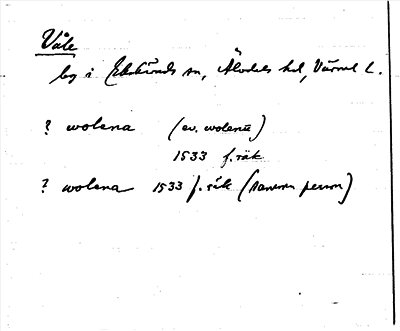 Våle
by i Ekshärads sn, Älvdals hd, Värml L.
? wolena (ev. wolenä)
1533 f.räk
? wolena 1533 f.räk (samma person)